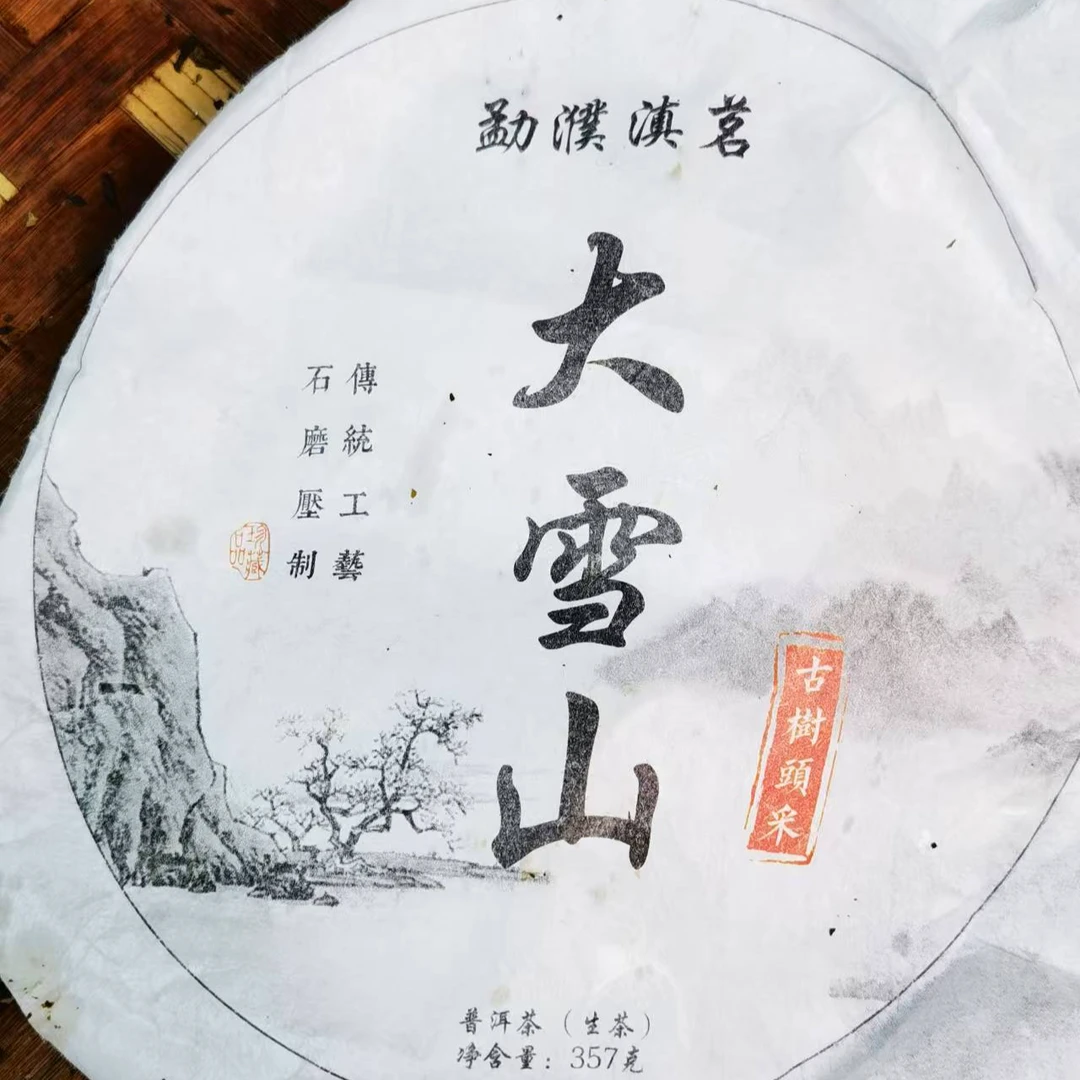 勐濮滇茗
大雪山
傳統工藝
石磨壓制
珍藏品
古樹頭采
普洱茶（生茶）
净含量：357克